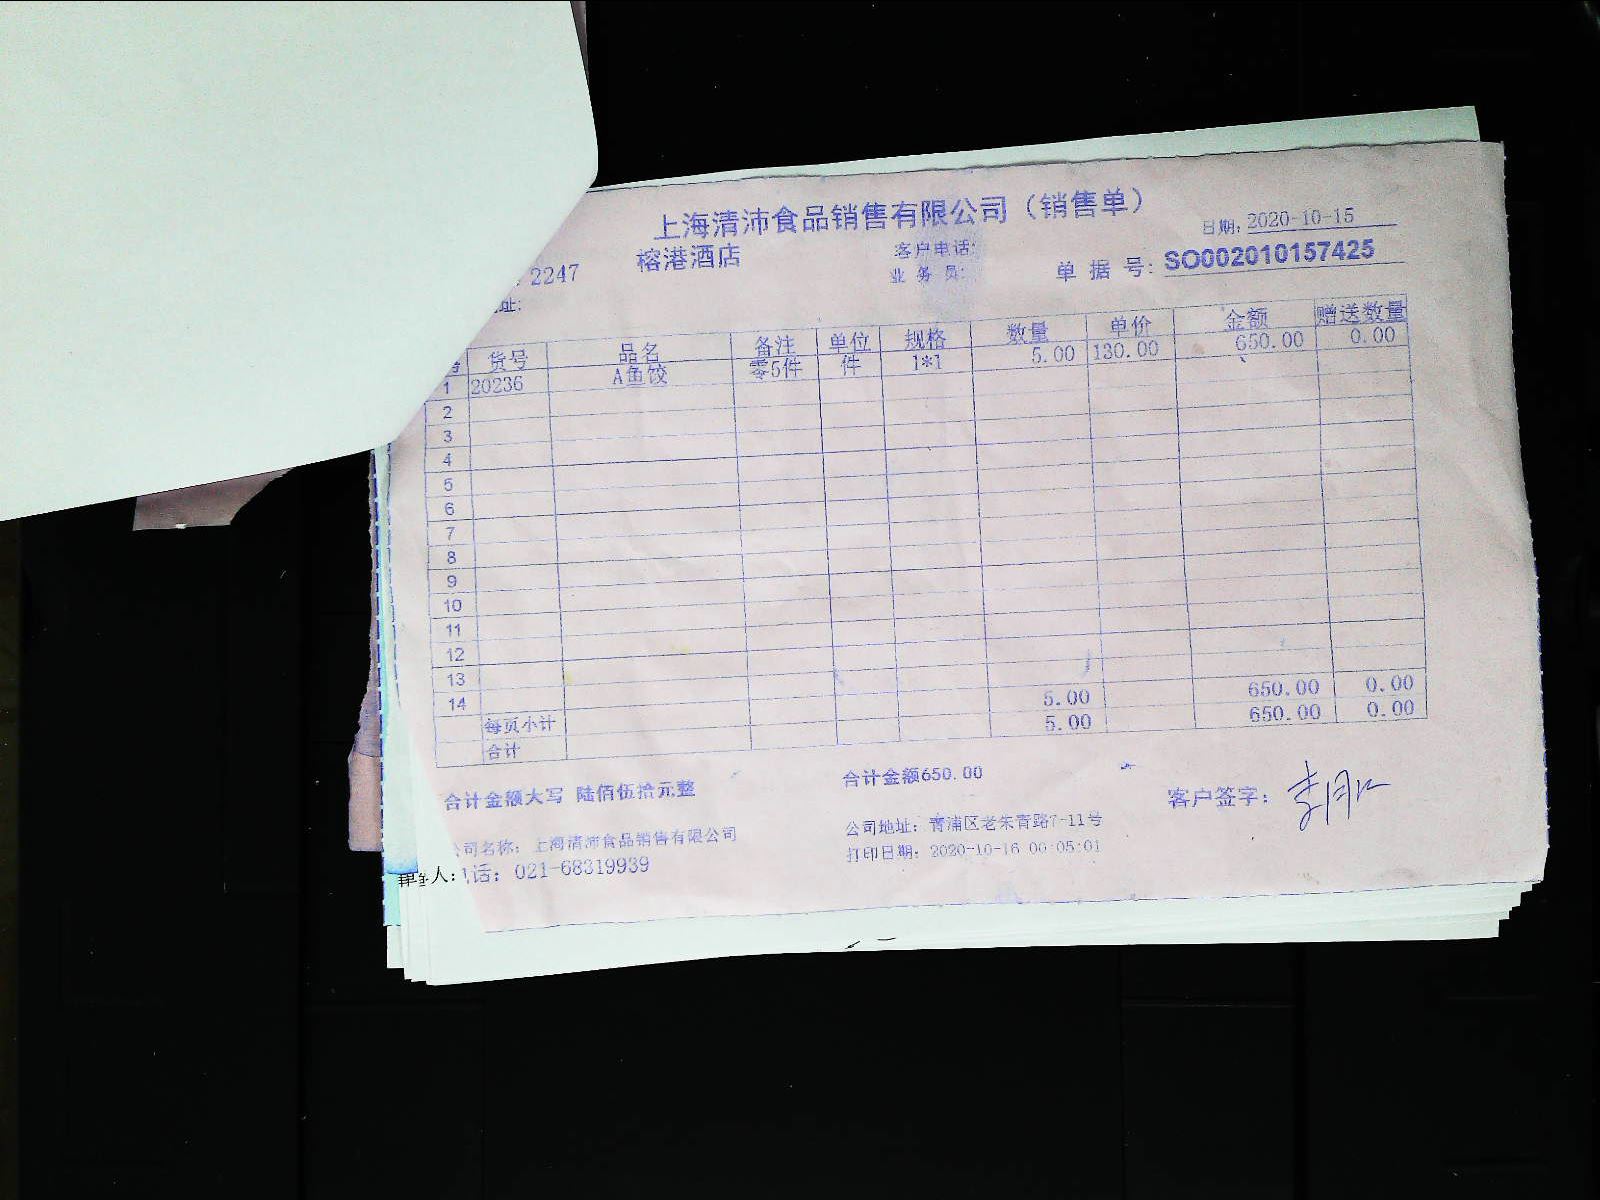 上海清沛食品销售有限公司（销售单）
日期: 2020-10-15
2247 榕港酒店 客户电话:
业务员: 单据号: SO002010157425
址:
号 货号 品名 备注 单位 规格 数量 单价 金额 赠送数量
1 20236 A鱼饺 零5件 件 1*1 5.00 130.00 650.00 0.00
2
3
4
5
6
7
8
9
10
11
12
13
14
每页小计 5.00 650.00 0.00
合计 5.00 650.00 0.00
合计金额大写 陆佰伍拾元整 合计金额650.00 客户签字:
公司名称: 上海清沛食品销售有限公司 公司地址: 青浦区老朱青路7-11号
人: 话: 021-68319939 打印日期: 2020-10-16 00:05:01